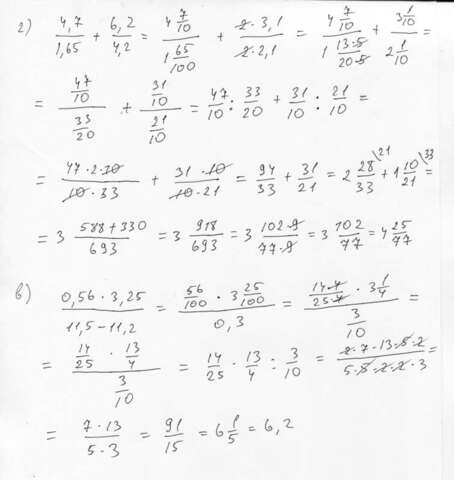 2) 4,7/1,65 + 6,2/4,2 = (4 7/10)/(1 65/100) + (2·3,1)/(2·2,1) = (4 7/10)/(1 13·5/20·5) + (3 1/10)/(2 1/10) =
= (47/10)/(33/20) + (31/10)/(21/10) = 47/10 : 33/20 + 31/10 : 21/10 =
= (47·2·10)/(10·33) + (31·10)/(10·21) = 94/33 + 31/21 = 2 28/33 \21 + 1 10/21 \33 =
= 3 (588+330)/693 = 3 918/693 = 3 (102·9)/(77·9) = 3 102/77 = 4 25/77
в) (0,56·3,25)/(11,5-11,2) = (56/100 · 3 25/100)/0,3 = (14·4/25·4 · 3 1/4)/(3/10) =
= (14/25 · 13/4)/(3/10) = 14/25 · 13/4 : 3/10 = (2·7·13·5·2)/(5·5·2·2·3) =
= (7·13)/(5·3) = 91/15 = 6 1/5 = 6,2